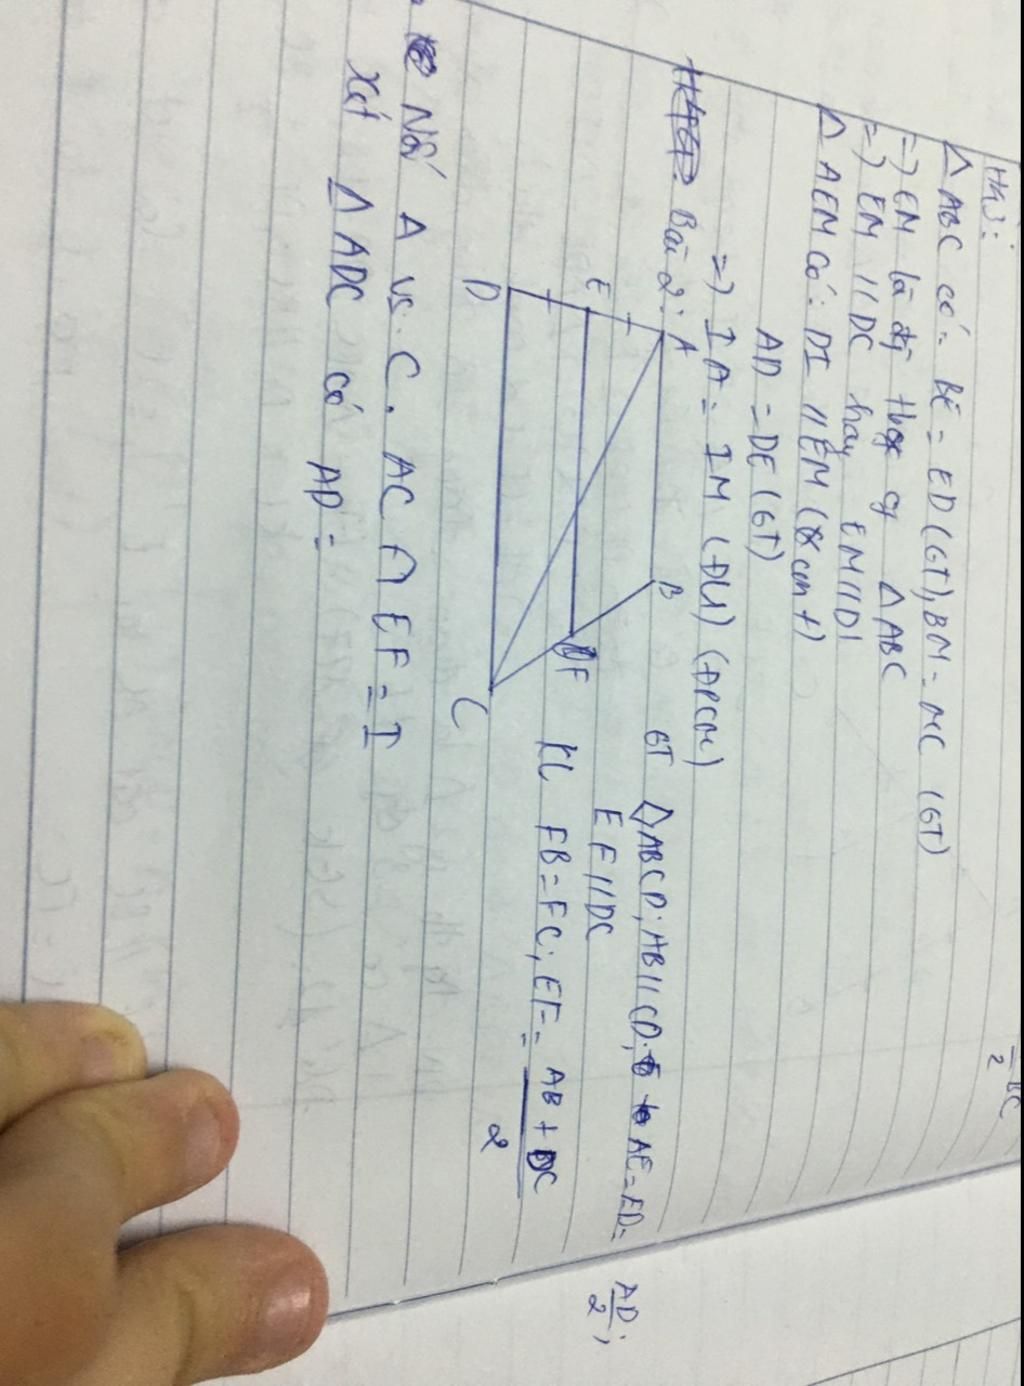 HK3:
BC
2
Δ ABC có: BE = ED (GT), BM = MC (GT)
=) EM là đg Δ ABC
=) EM // DC hay EM // DI
Δ AEM có: DI // EM ( cm t)
AD = DE (GT)
=) IA = IM (ĐLI) (ĐPCM)
Bài 2:
A
B
E
F
D
C
GT ABCD; AB // CD; AE = ED = AD/2;
EF // DC
KL FB = FC; EF = AB + DC
2
Nối A vs C. AC ∩ EF = I
Xét Δ ADC có AD =